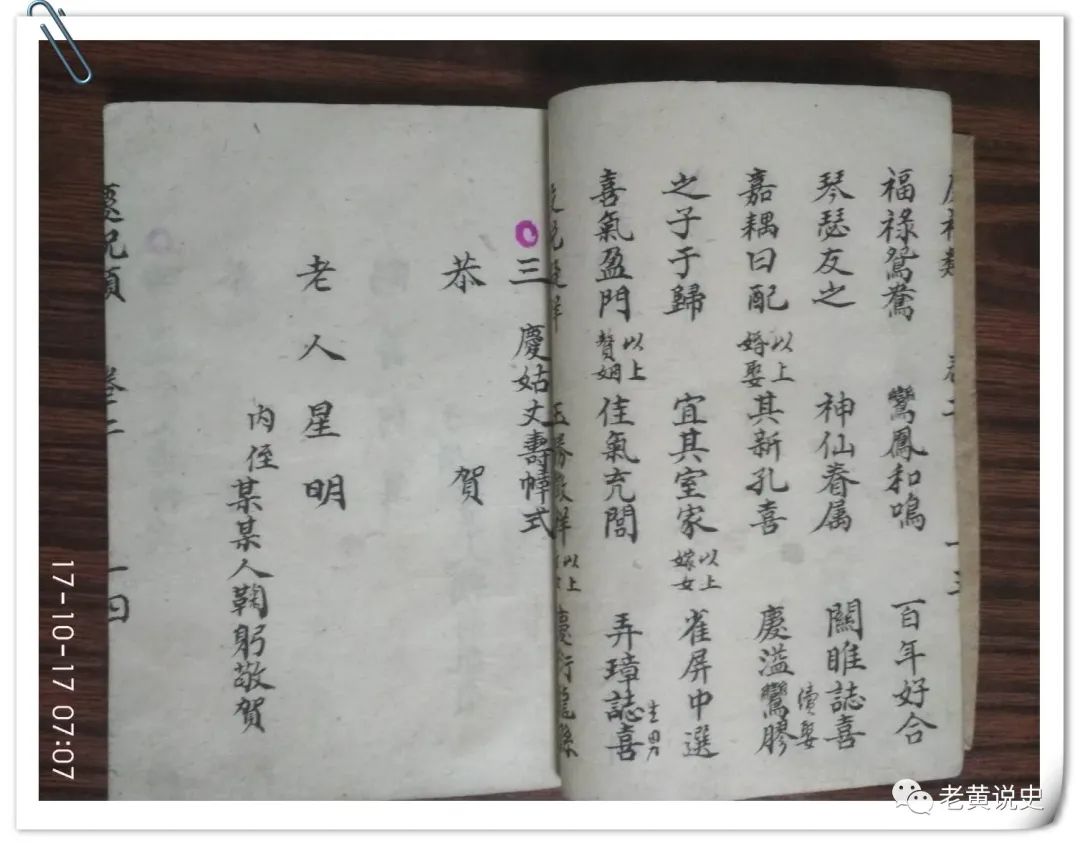 福祿鴛鴦 鸞鳳和鳴 百年好合
琴瑟友之 神仙眷属 關睢誌喜
嘉耦曰配 以上婚娶 其新孔喜 慶溢鸞膠 續娶
之子于歸 宜其室家 以上嫁女 雀屏中選
喜氣盈門 以上贅姻 佳氣充閭 弄璋誌喜 生男
以上
三 慶姑丈壽幛式
恭賀
老人星明
内侄某某人鞠躬敬賀
卷二 一四
17-10-17 07:07
老黄说史